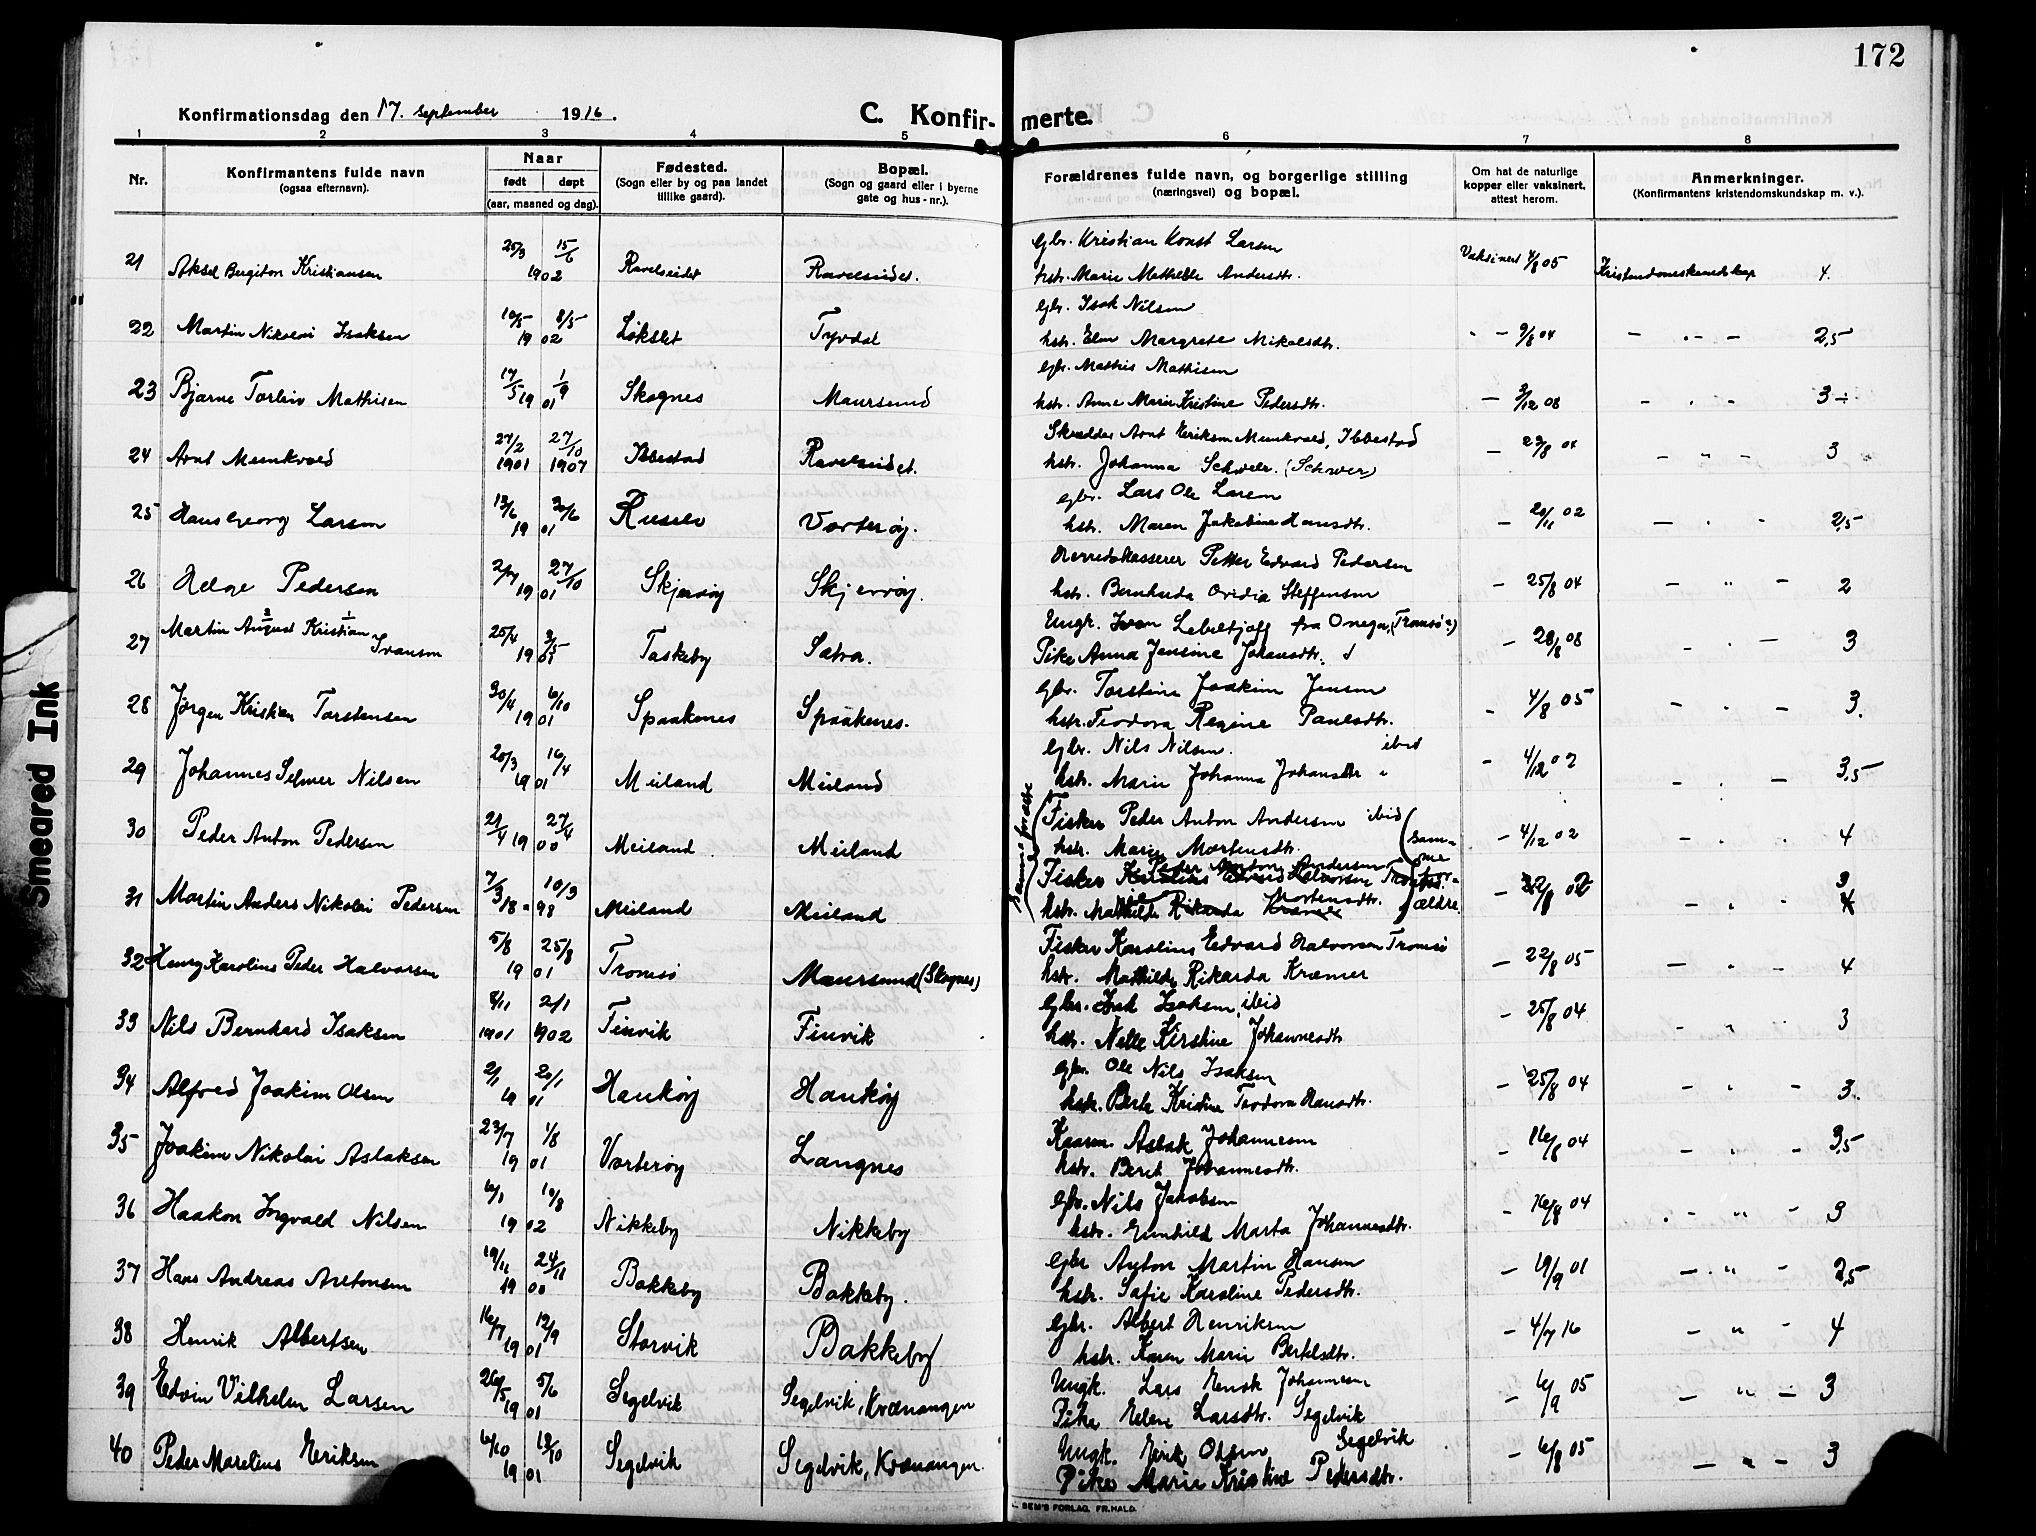 172
Konfirmationsdag den 17. september 1916.
C. Konfirmerte.
1 2 3 4 5 6 7 8
Nr.
Konfirmantens fulde navn
(ogsaa efternavn).
Naar
født døpt
(aar, maaned og dag).
Fødested.
(Sogn eller by og paa landet
tillike gaard).
Bopæl.
(Sogn og gaard eller i byerne
gate og hus-nr.).
Forældrenes fulde navn, og borgerlige stilling
(næringsvei) og bopæl.
Om hat de naturlige
kopper eller vaksinert,
attest herom.
Anmerkninger.
(Konfirmantens kristendomskundskap m. v.).
gbr. Kristian Konst Larsen
21 Aksel Bergiton Kristiansen 25/3 15/6 1902 Ravelseidet Ravelseidet. hstr. Marie Mathilde Andersdtr. Vaksinert 4/8 05 Kristendomskundskap 4.
gbr. Isak Nilsen
22 Martin Nikolai Isaksen 10/5 8/5 1902 Løkslet Tyvdal hstr. Elen Margrete Mikalsdtr. - 9/8 04 - " - 2,5
gbr. Mathis Mathisen
23 Bjarne Torleiv Mathisen 17/5 1/9 1901 Skognes Maursund hstr. Anne Marie Kristine Pedersdtr. - 3/12 08 - " - 3 ÷
Skrædder Arnt Eriksen Munkvold, Ibbestad
24 Arnt Munkvold 27/2 1901 27/10 1907 Ibbestad Ravelseidet. hstr. Johanna Schwelr. (Schwer) - 23/8 04 - " - 3
gbr. Lars Ole Larsen
25 Hans Georg Larsen 13/6 30/6 1901 Vorterøy. hstr. Maren Jakobine Hansdtr. - 20/11 02 - " - 2,5
Herredskasserer Petter Edvard Pedersen
26 Helge Pedersen 2/7 27/10 1901 Skjervøy Skjervøy. hstr. Bernharda Ovidia Steffensen - 25/8 04 - " - 2
Ungk. Ivan Lebeltjoff fra Onega, (Tromsø?)
27 Martin August Kristian Ivansen 25/4 3/5 1901 Taskeby Pike Anna Jensine Johansdtr. - 28/8 08 " - 3
gbr. Torstein Joakim Jensen
28 Jørgen Kristian Torstensen 30/4 6/10 1901 Spaakenes Spaakenes. hstr. Teodora Regine Paulsdtr. - 4/8 05 - " - 3.
gbr. Nils Nilsen. ibid
29 Johannes Selmer Nilsen 20/3 16/4 1901 Meiland Meiland hstr. Marie Johanna Johansdtr " - 4/12 02 - " - 3,5
Fisker Peder Anton Andersen ibid
30 Peder Anton Pedersen 21/4 27/4 1900 Meiland Meiland hstr. Marie Mortensdtr. - 4/12 02 - " - 4
samme forældre
samme forældre
Fisker Peder Anton Andersen
31 Martin Anders Nikolai Pedersen 7/3 10/3 18-98 Meiland Meiland hstr. Mathilde Rikarda Kræmer Mortensdtr. - 22/8 02 - " - 3
Fisker Karolius Edvard Halvorsen Tromsø
32 Henry Karolius Peder Halvorsen 5/8 25/8 1901 Tromsø Maursund (Skognes) hstr. Mathilde Rikarda Kræmer - 22/8 05 - " - 4
gbr. Isak Isaksen, ibid
33 Nils Bernhard Isaksen 8/11 1901 2/1 1902 Finvik Finvik hstr. Nelle Kirstine Johannesdtr - 25/8 04 - " - 3
gbr. Ole Nils Isaksen
34 Alfred Joakim Olsen 2/1 20/1 1901 Haukøy Haukøy hstr. Berle Kristine Teodora Hansdtr. - 25/8 04 - " - 3.
Kaarm. Aslak Johannesen
35 Joakim Nikolai Aslaksen 23/7 1/8 1901 Vorterøy Langnes hstr. Beret Johannesdtr. - 16/8 04 - " - 3,5
gbr. Nils Jakobsen
36 Haakon Ingvald Nilsen 6/1 10/8 1902 Nikkeby Nikkeby hstr. Gunhild Marta Johannesdtr. - 16/8 04 - " - 3
gbr Anton Martin Hansen
37 Hans Andreas Antonsen 19/11 24/11 1900 Bakkeby Bakkeby. hstr. Sofie Karoline Pedersdtr. - 19/9 01 - " - 2,5
gbr. Albert Henriksen
38 Henrik Albertsen 16/7 19/9 1901 Storvik Bakkeby hstr. Karen Marie Bertelsdtr. - 4/7 16 - " - 4
Ungk. Lars Johannesen
39 Edvin Vilhelm Larsen 26/5 5/6 1901 Segelvik Segelvik, Kvænangen Pike Elene Larsdtr. Segelvik - 6/9 05 - " - 3
Ungk. Erik Olsen Segelvik
40 Peder Marelius Eriksen 6/10 13/10 1901 Segelvik Segelvik, Kvænangen. Pike Marie Kristine Pedersdtr. - 6/8 05 - " - 3
SEM'S FORLAG, FR.HALD.
Smeared Ink